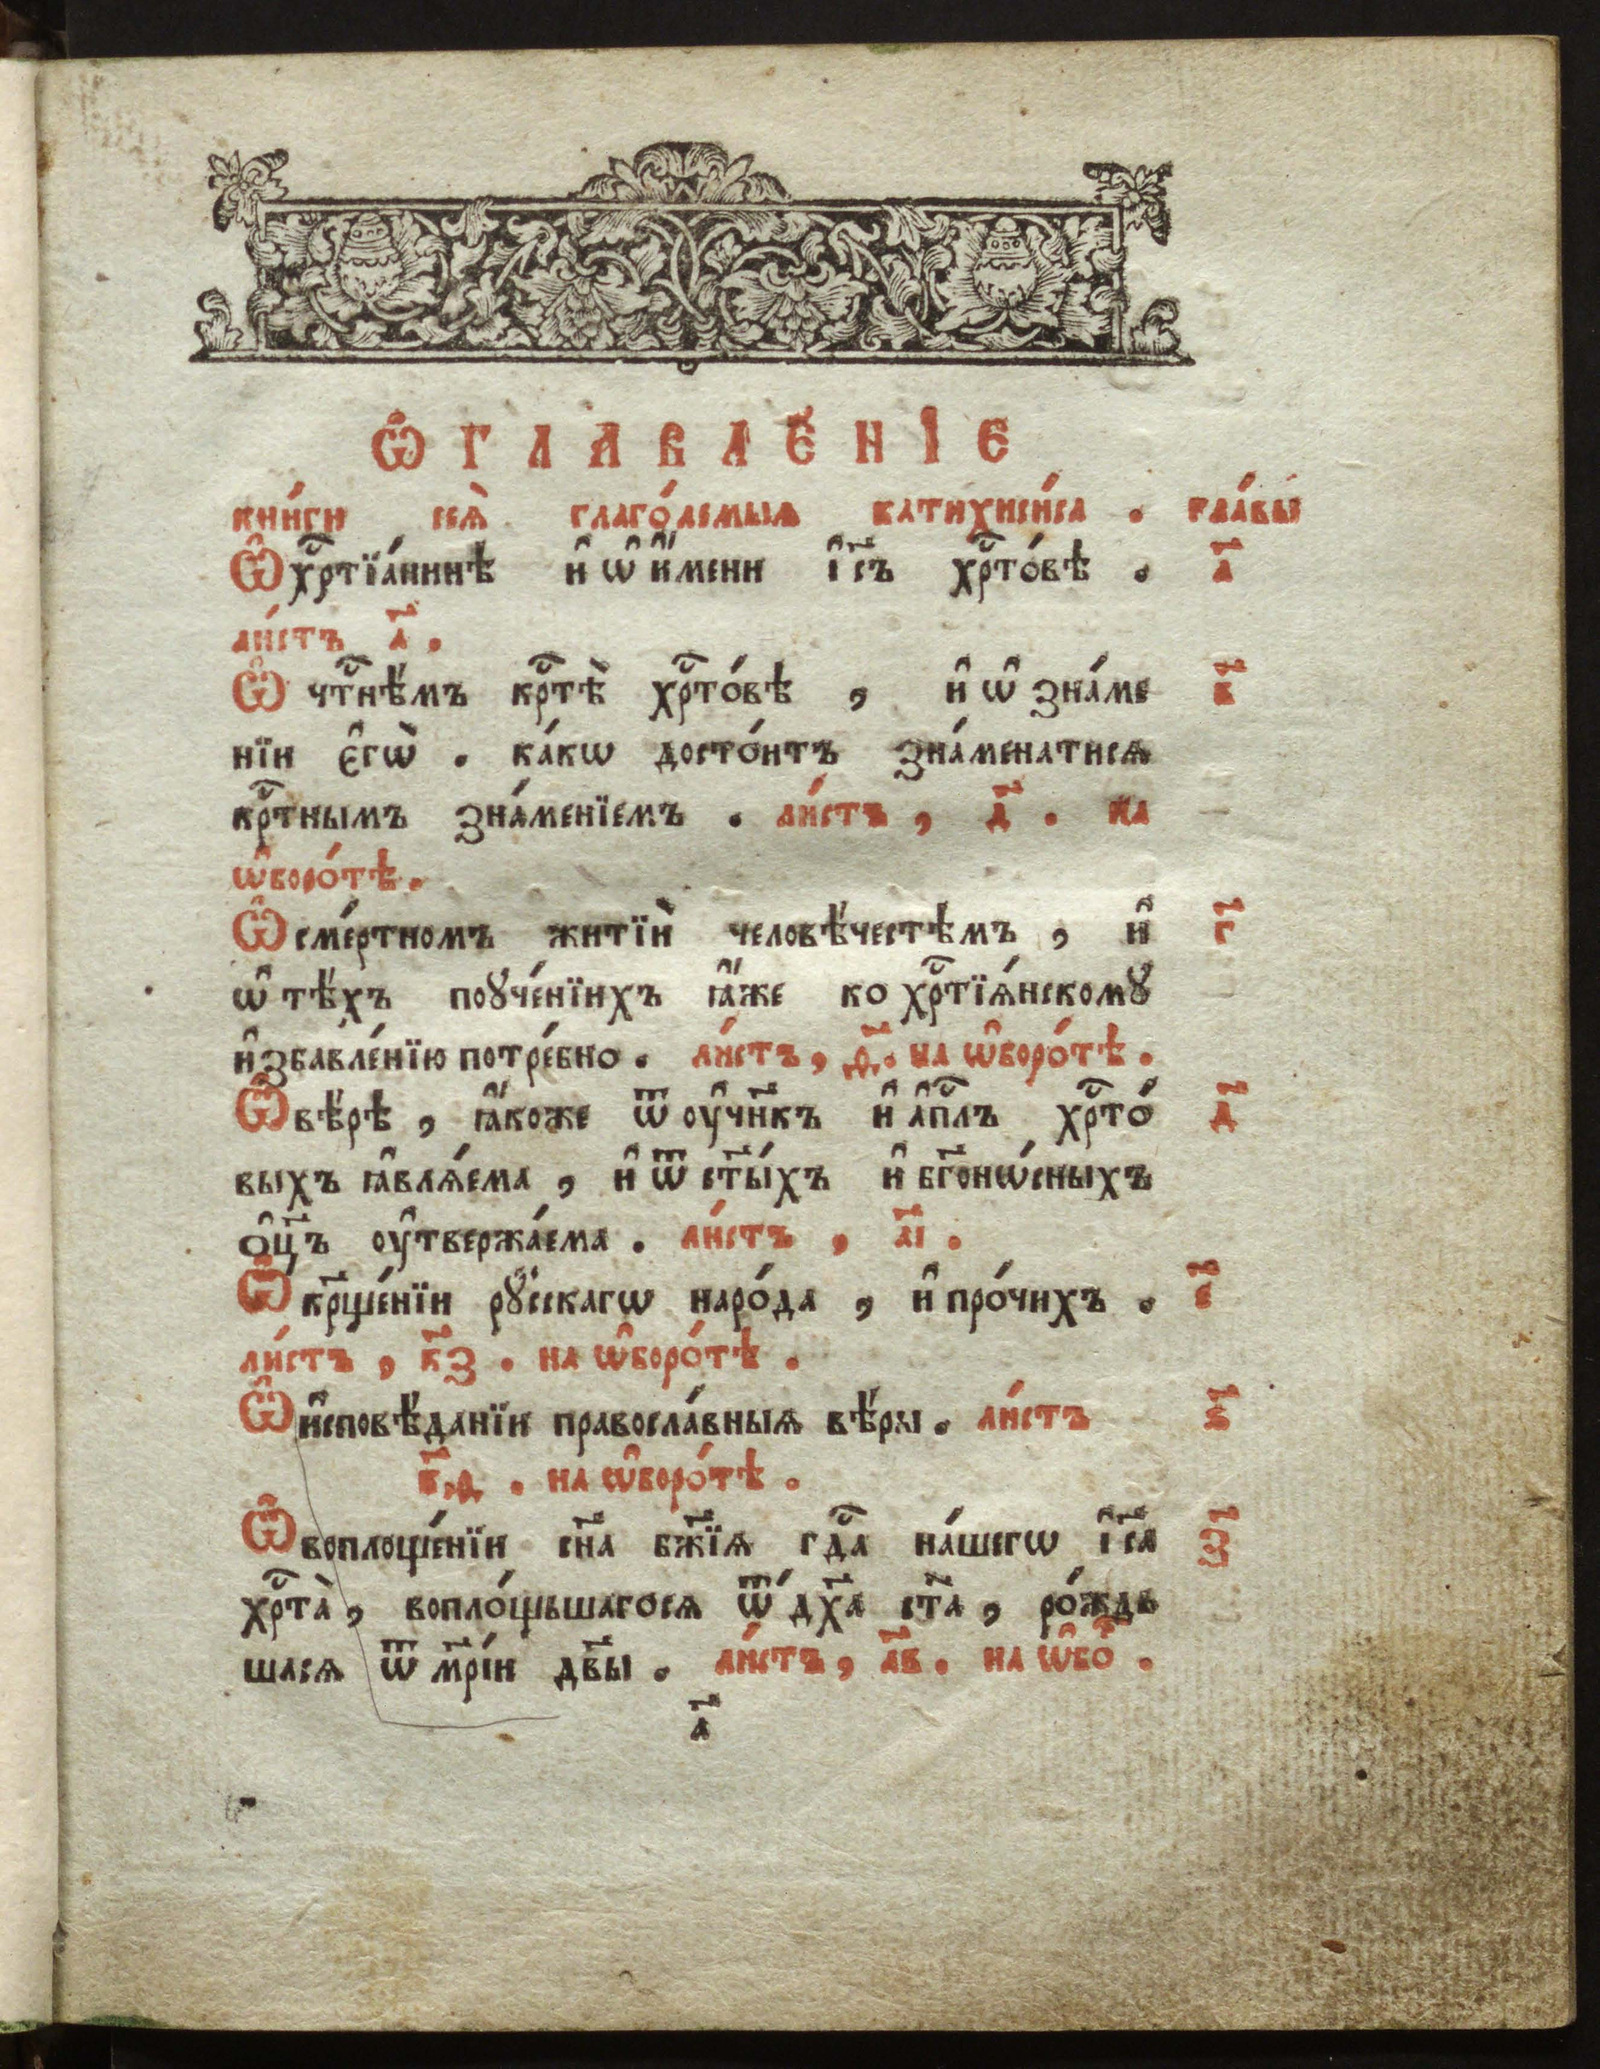 Ѡ҆ГЛАВЛЕ́НІЕ
кни́ги сея̀ глаго́лемыя катихиси́са . главы̀
Ѽ хрⷭ҇тїа́нинѣ и҆ ѡ҆ и҆́мени і҆с҃ъ хрⷭ҇то́вѣ . а҃
ли́стъ а҃ .
Ѽ чтⷭ҇нѣ́мъ крⷭ҇тѣ̀ хрⷭ҇то́вѣ , и҆ ѡ҆ зна́ме в҃
нїи є҆гѡ̀ . ка́кѡ досто́итъ зна́менатисѧ
крⷭ҇тнымъ зна́менїемъ . ли́стъ , д҃ . на
ѡ҆боро́тѣ .
Ѽ сме́ртномъ житїѝ человѣ́честѣмъ , и҆ г҃
ѡ҆ тѣ́хъ поꙋче́нїихъ ꙗ҆́же ко хрⷭ҇тїѧ́нскомꙋ
и҆збавле́нїю потре́бно . ли́стъ , ѳ҃ . на ѡ҆боро́тѣ .
Ѽ вѣ́рѣ , ꙗ҆́коже ѿ ᲂу҆чн҃къ и҆ а҆пⷭ҇лъ хрⷭ҇то́ д҃
выхъ ꙗ҆влѧ́ема , и҆ ѿ ст҃ы́хъ и҆ бг҃онѡ́сныхъ
ѻ҆ц҃ъ ᲂу҆твержа́ема . ли́стъ , а҃і .
Ѽ крщ҃е́нїи рꙋ́сскагѡ наро́да , и҆ про́чихъ . є҃
ли́стъ , к҃з . на ѡ҆боро́тѣ .
Ѽ и҆сповѣ́данїи правосла́выѧ вѣ́ры . ли́стъ ѕ҃
к҃ѳ . на ѡ҆боро́тѣ .
Ѽ воплоще́нїи сн҃а бж҃їѧ гдⷭ҇а на́шегѡ і҆с҃а з҃
хрⷭ҇та̀ , воплощьшагосѧ ѿ дх҃а ст҃а , ро́ждь
шасѧ ѿ мр҃і́и дв҃ы . ли́стъ , л҃в . на ѡ҆боⷬ҇ .
а҃